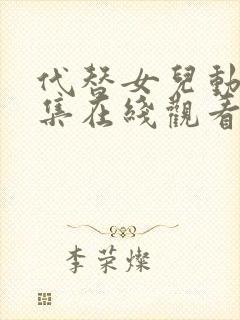 代替女兒動
集在綫觀看
李荣燦